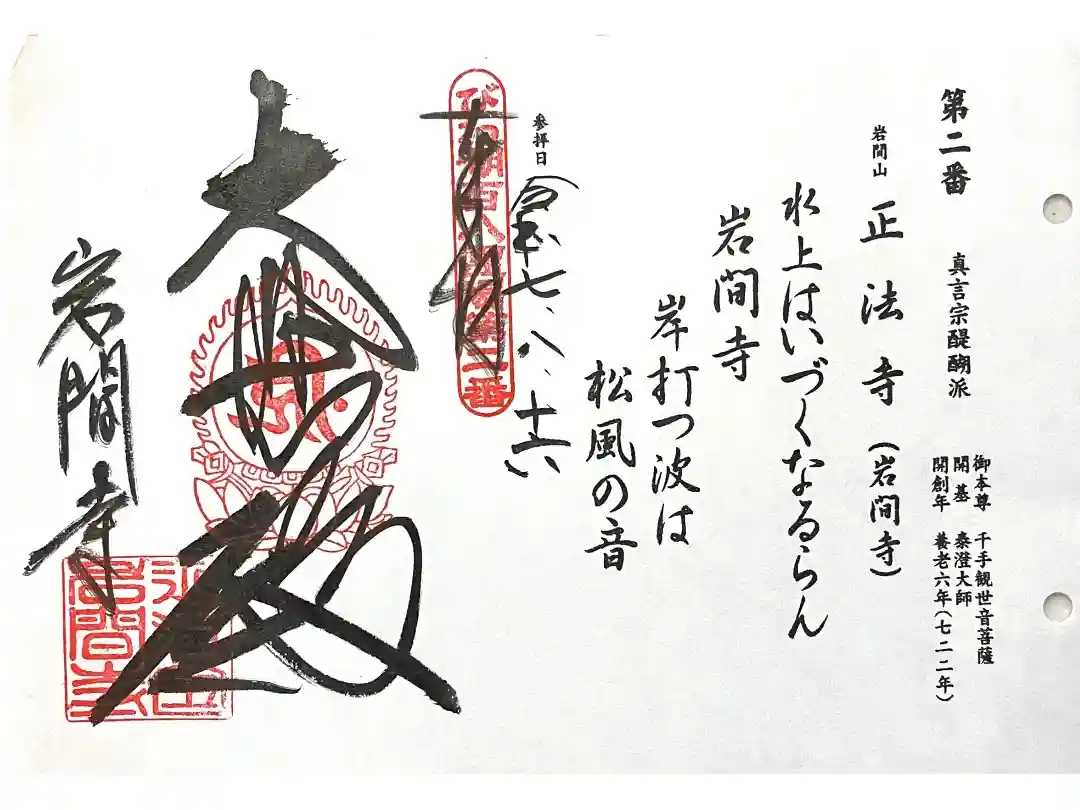 第二番 真言宗醍醐派
御本尊 千手観世音菩薩
開基 泰澄大師
開創年 養老六年(七二二年)
岩間山 正法寺(岩間寺)
水上はいづくなるらん
岩間寺
岸打つ波は
松風の音
参拝日 令和七、八、十六
びわ湖百八霊場第二番
奉拝
大悲殿
岩間寺